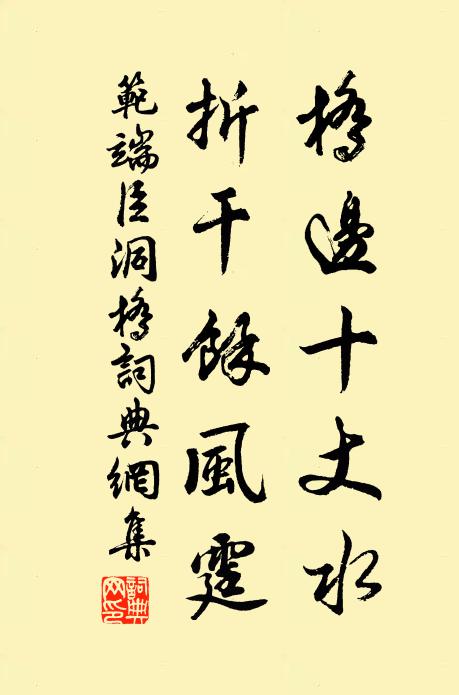 橋邊十丈水
折干餘風霆
範端臣洞橋詞典網集
詞典網印